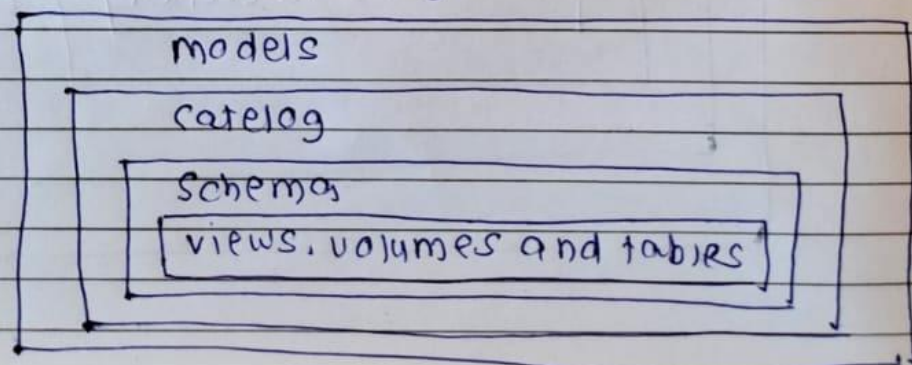 models
catelog
schema
views, volumes and tables